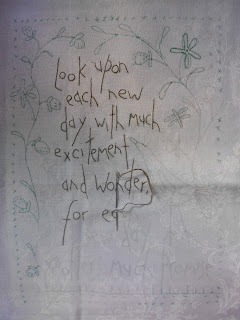 look upon
each new
day with much
excitement,
and wonder,
for ea